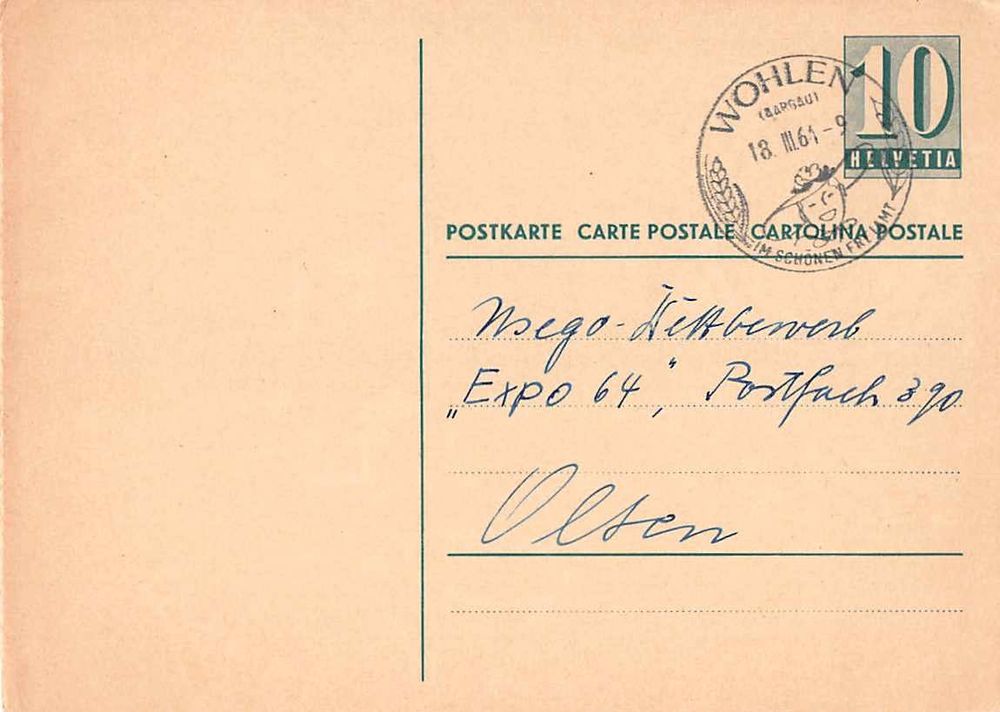 10
HELVETIA
WOHLEN
(AARGAU)
18. III. 64 - 9
IM SCHÖNEN FREIAMT
POSTKARTE CARTE POSTALE CARTOLINA POSTALE
Usego - Wettbewerb
„Expo 64", Postfach 390
Olten